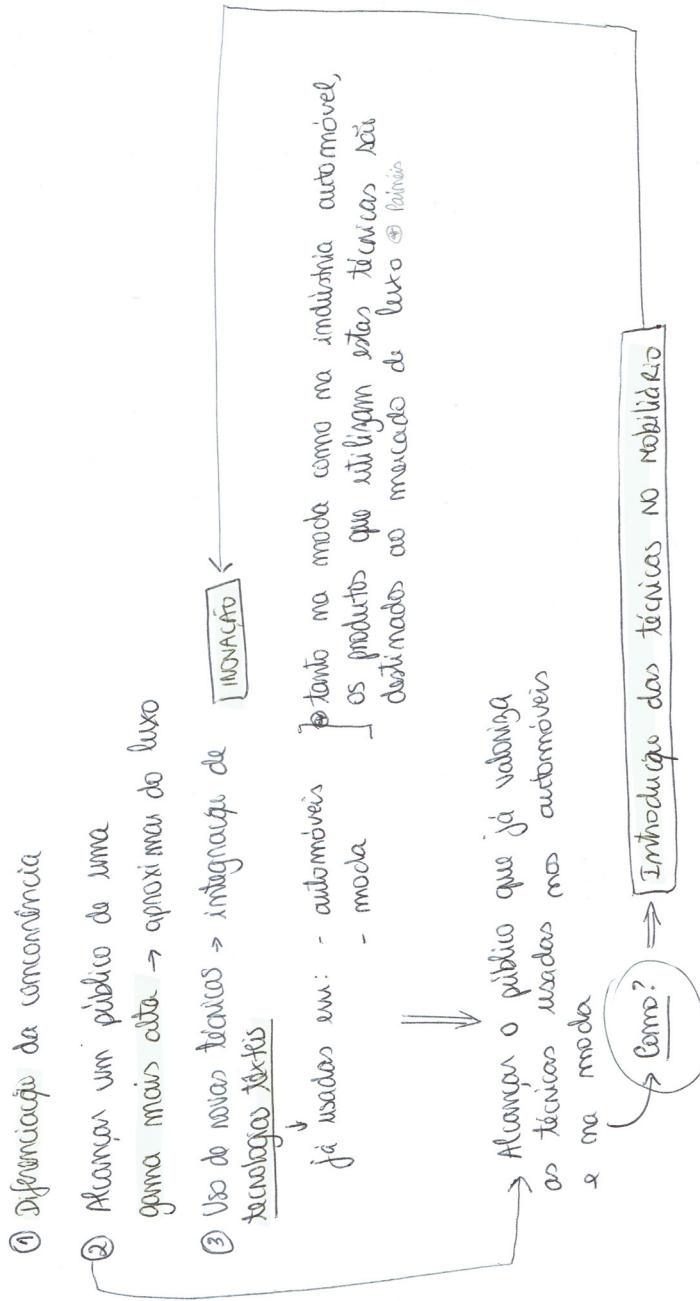 ① Diferenciação da concorrência
② Alcançar um público de uma
gama mais alta → aproximar do luxo
③ Uso de novas técnicas → integração de
tecnologias têxteis
INOVAÇÃO
já usadas em: - automóveis
- moda
⊕ tanto na moda como na indústria automóvel,
os produtos que utilizam estas técnicas são
destinados ao mercado de luxo ⊕ Painéis
Alcançar o público que já valoriza
as técnicas usadas nos automóveis
e na moda
Como? ⇒ Introdução das técnicas no mobiliário